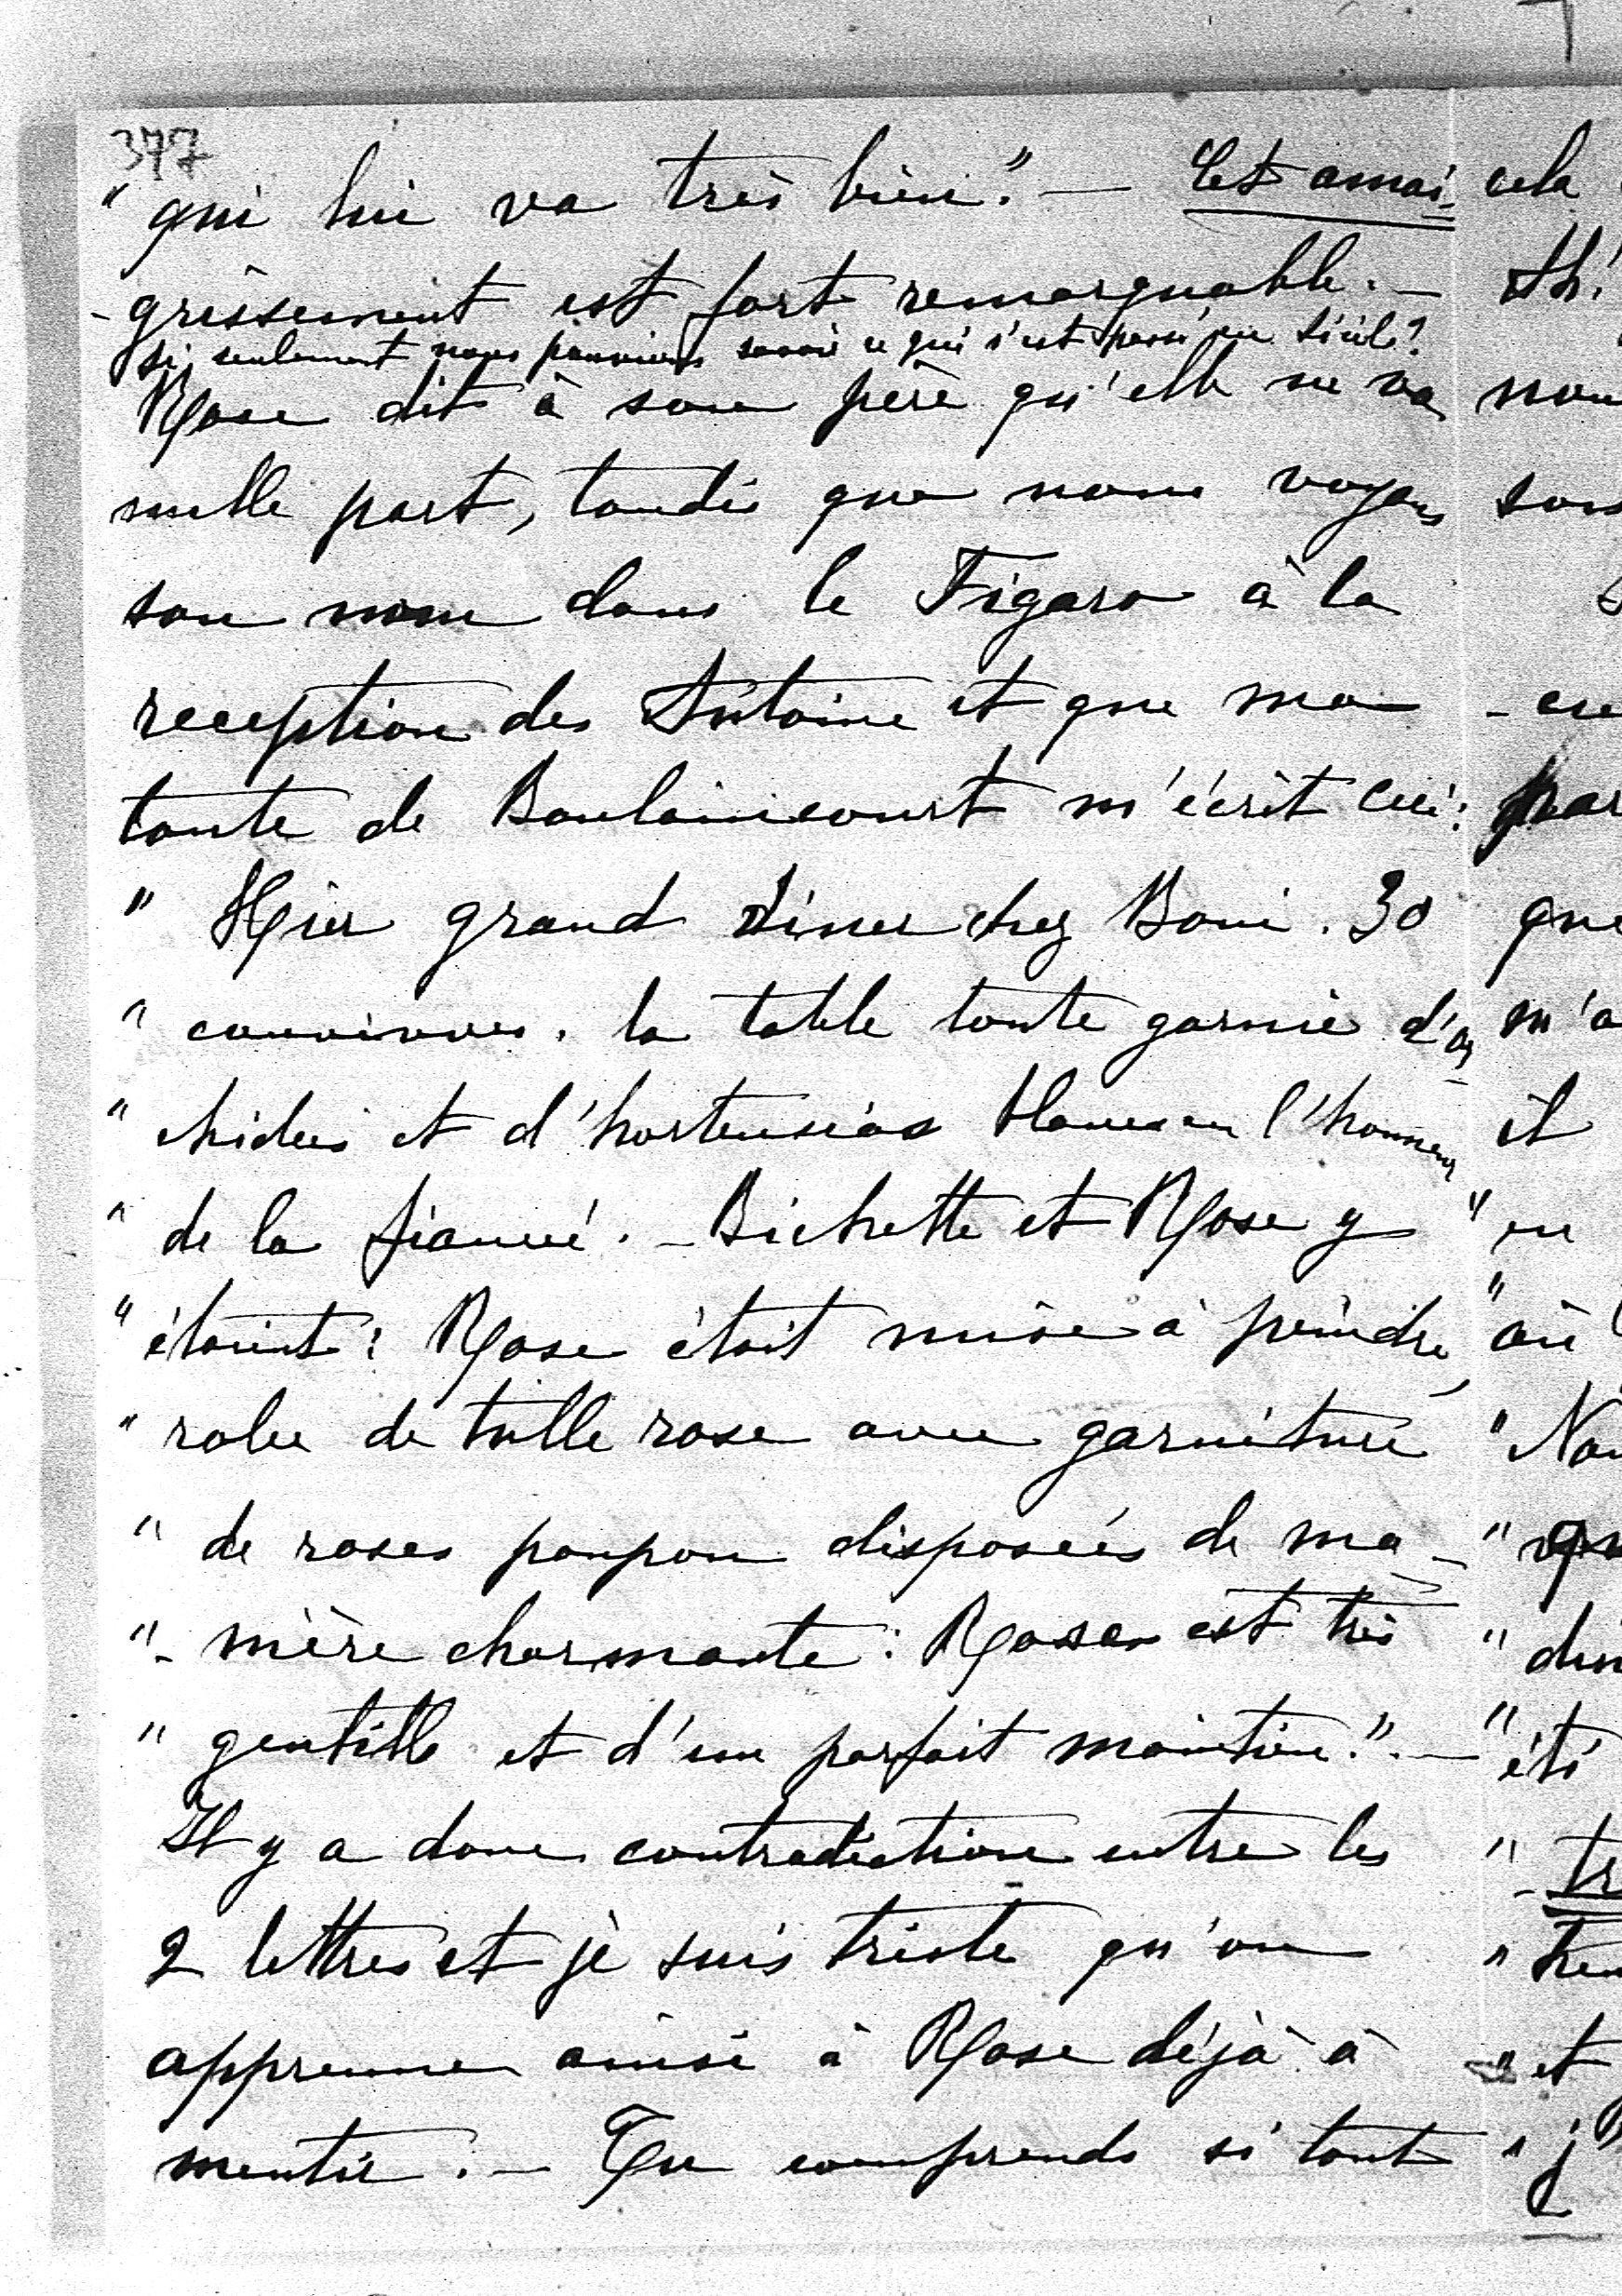 377
" qui lui va très bien." — Cet amai-
- grissement est fort remarquable. —
si seulement nous pouvions savoir ce qui s'est passé en Sicile?
Rose dit à son père qu'elle ne va
nulle part, tandis que nous voyons
son nom dans le Figaro à la
reception des Antoine et que ma
tante de Baulaincourt m'écrit ceci:
" Hier grand diner chez Boni. 30
" convives. la table toute garnie d'or
" chidées et d'hortensias blancs en l'honneur
" de la fiancée. - Bichette et Rose y
" étaient: Rose était mise à peindre,
" robe de tulle rose avec garniture
" de roses pompon disposées de ma-
"- nière charmante: Rose est très
" gentille et d'un parfait maintien." . —
Il y a donc contradiction entre les
2 lettres et je suis triste qu'on
apprenne ainsi à Rose déjà à
mentir. — Tu comprends si tout
cela
nou
sons
par
que
m'a
il
" en
" où
" Nou
" été
" et
" j